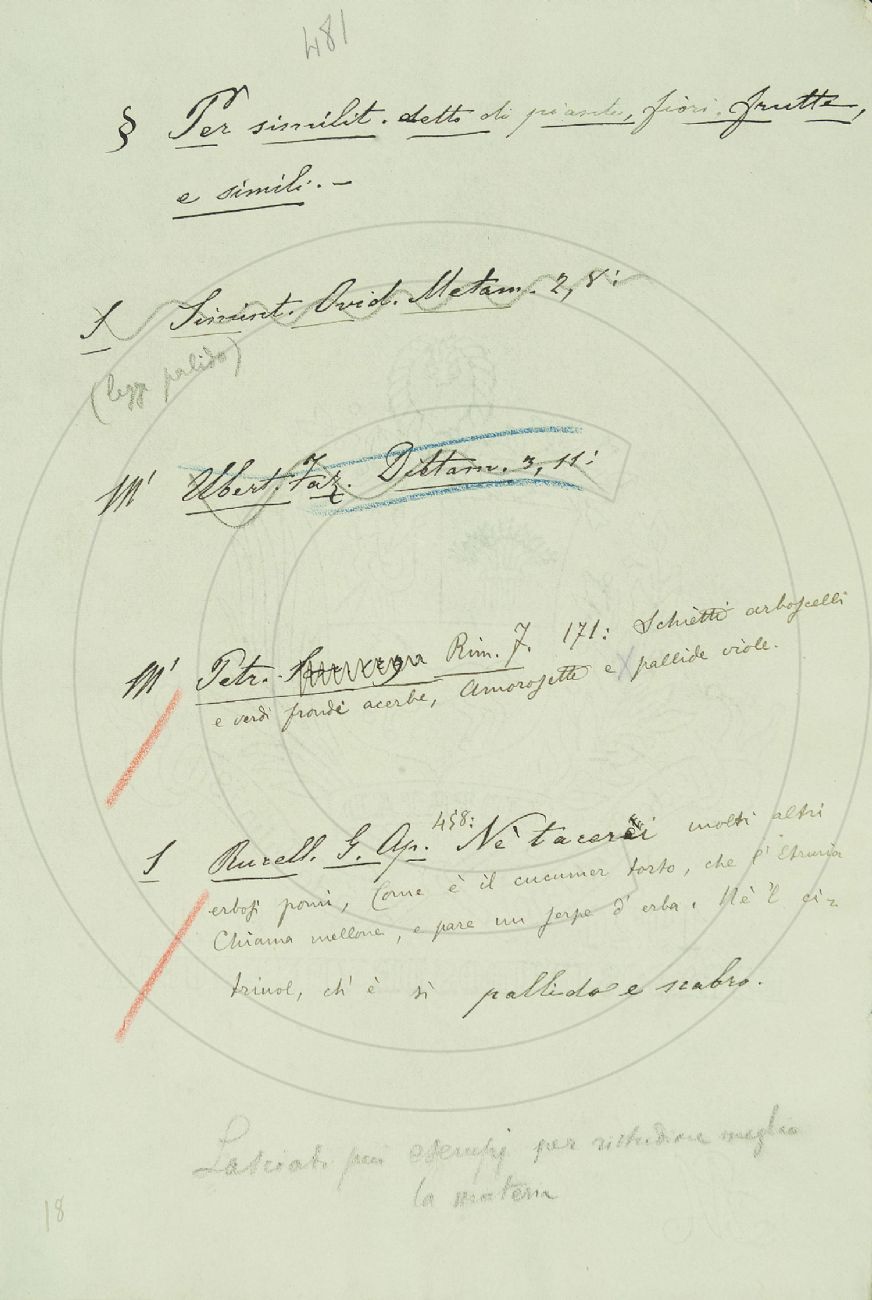 481
§ Per similit. detto di piante, fiori, frutta,
e simili. –
S Simint. Ovid. Metam. 2, 8:
(legge palido)
M' Ubert. Faz. Dittam. 3, 11:
M' Petr. Rim. F. 171: Schietti arboscelli
e verdi frondi acerbe, Amorosette e pallide viole.
S Rucell. G. Ap. 458: Nè tacerei molti altri
erbosi pomi, Come è il cucumer torto, che l'Etruria
Chiama mellone, e pare un serpe d'erba. Nè 'l ci=
triuol, ch'è sì pallido e scabro.
Lasciati più esempj per richiedere meglio
la materia
18